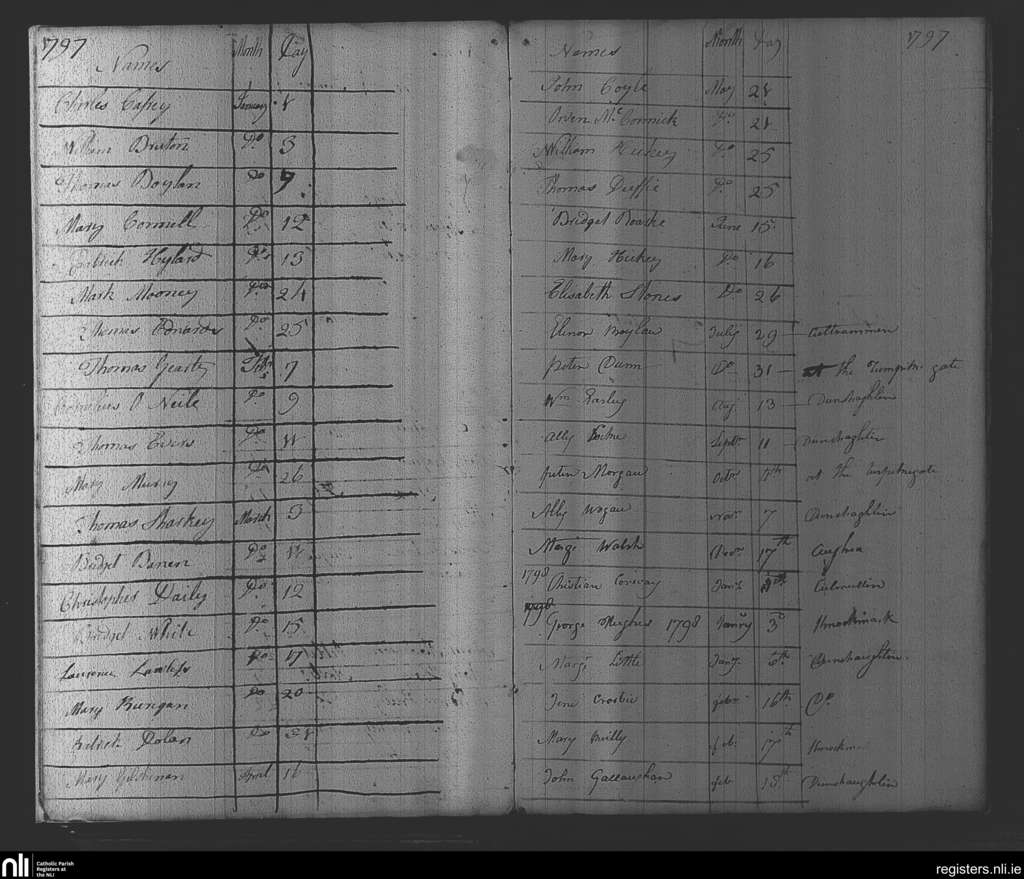 1797
Names Month Day
Charles Casey January 1
William Bruton Do 3
Thomas Boylan Do 9
Mary Connell Do 12
Patrick Hyland Do 13
Mark Mooney Do 24
Thomas Edwards Do 25
Thomas Gearty 7
Cornelius O Neile Do 9
Thomas Evers Do 11
Mary Murry Do 26
Thomas Sharkey March 3
Bridget Do 11
Christopher Daily Do 12
Bridget White Do 15
Laurence Lawless Do 17
Mary Do 20
Patrick Dolan Do 21
Mary April 16
Names Month Day 1797
John Coyle May 21
Owen McCormick Do 21
William Hickey Do 25
Thomas Duffie Do 25
Bridget Roarke June 15
Mary Hickey Do 16
Elisabeth Stones Do 26
Elinor Boylan July 29
Peter Dunn Do 31 at the gate
Wm Aug 13 Dunshaghlin
Ally Septbr 11 Dunshaghlin
peter Morgan Octbr 7th at the
Ally Wogan 7 Dunshaghlin
Margt Walsh Novr 17th
1798 Christian Conway
1798 George Hughes 1798 Janry 3d Knockmark
Margt Little Jany 6th Dunshaughlin
Jene Crosbie febr 16th Do
Mary Reilly feb 17th
John Gallaughan feb 18th Dunshaughlin
nli
Catholic Parish
Registers at
the NLI
registers.nli.ie